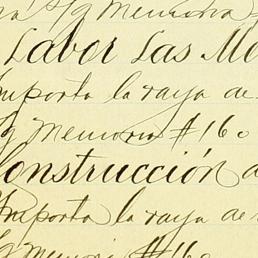 S/g Memoria
Labor Las Mo
Importa la raya de
S/g Memoria #160
Construcción d
Importa la raya de
S/g Memoria #160